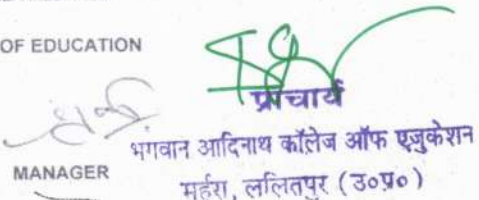 OF EDUCATION
प्राचार्य
भगवान आदिनाथ कॉलेज ऑफ एजुकेशन
MANAGER
महर्रा, ललितपुर (उ०प्र०)